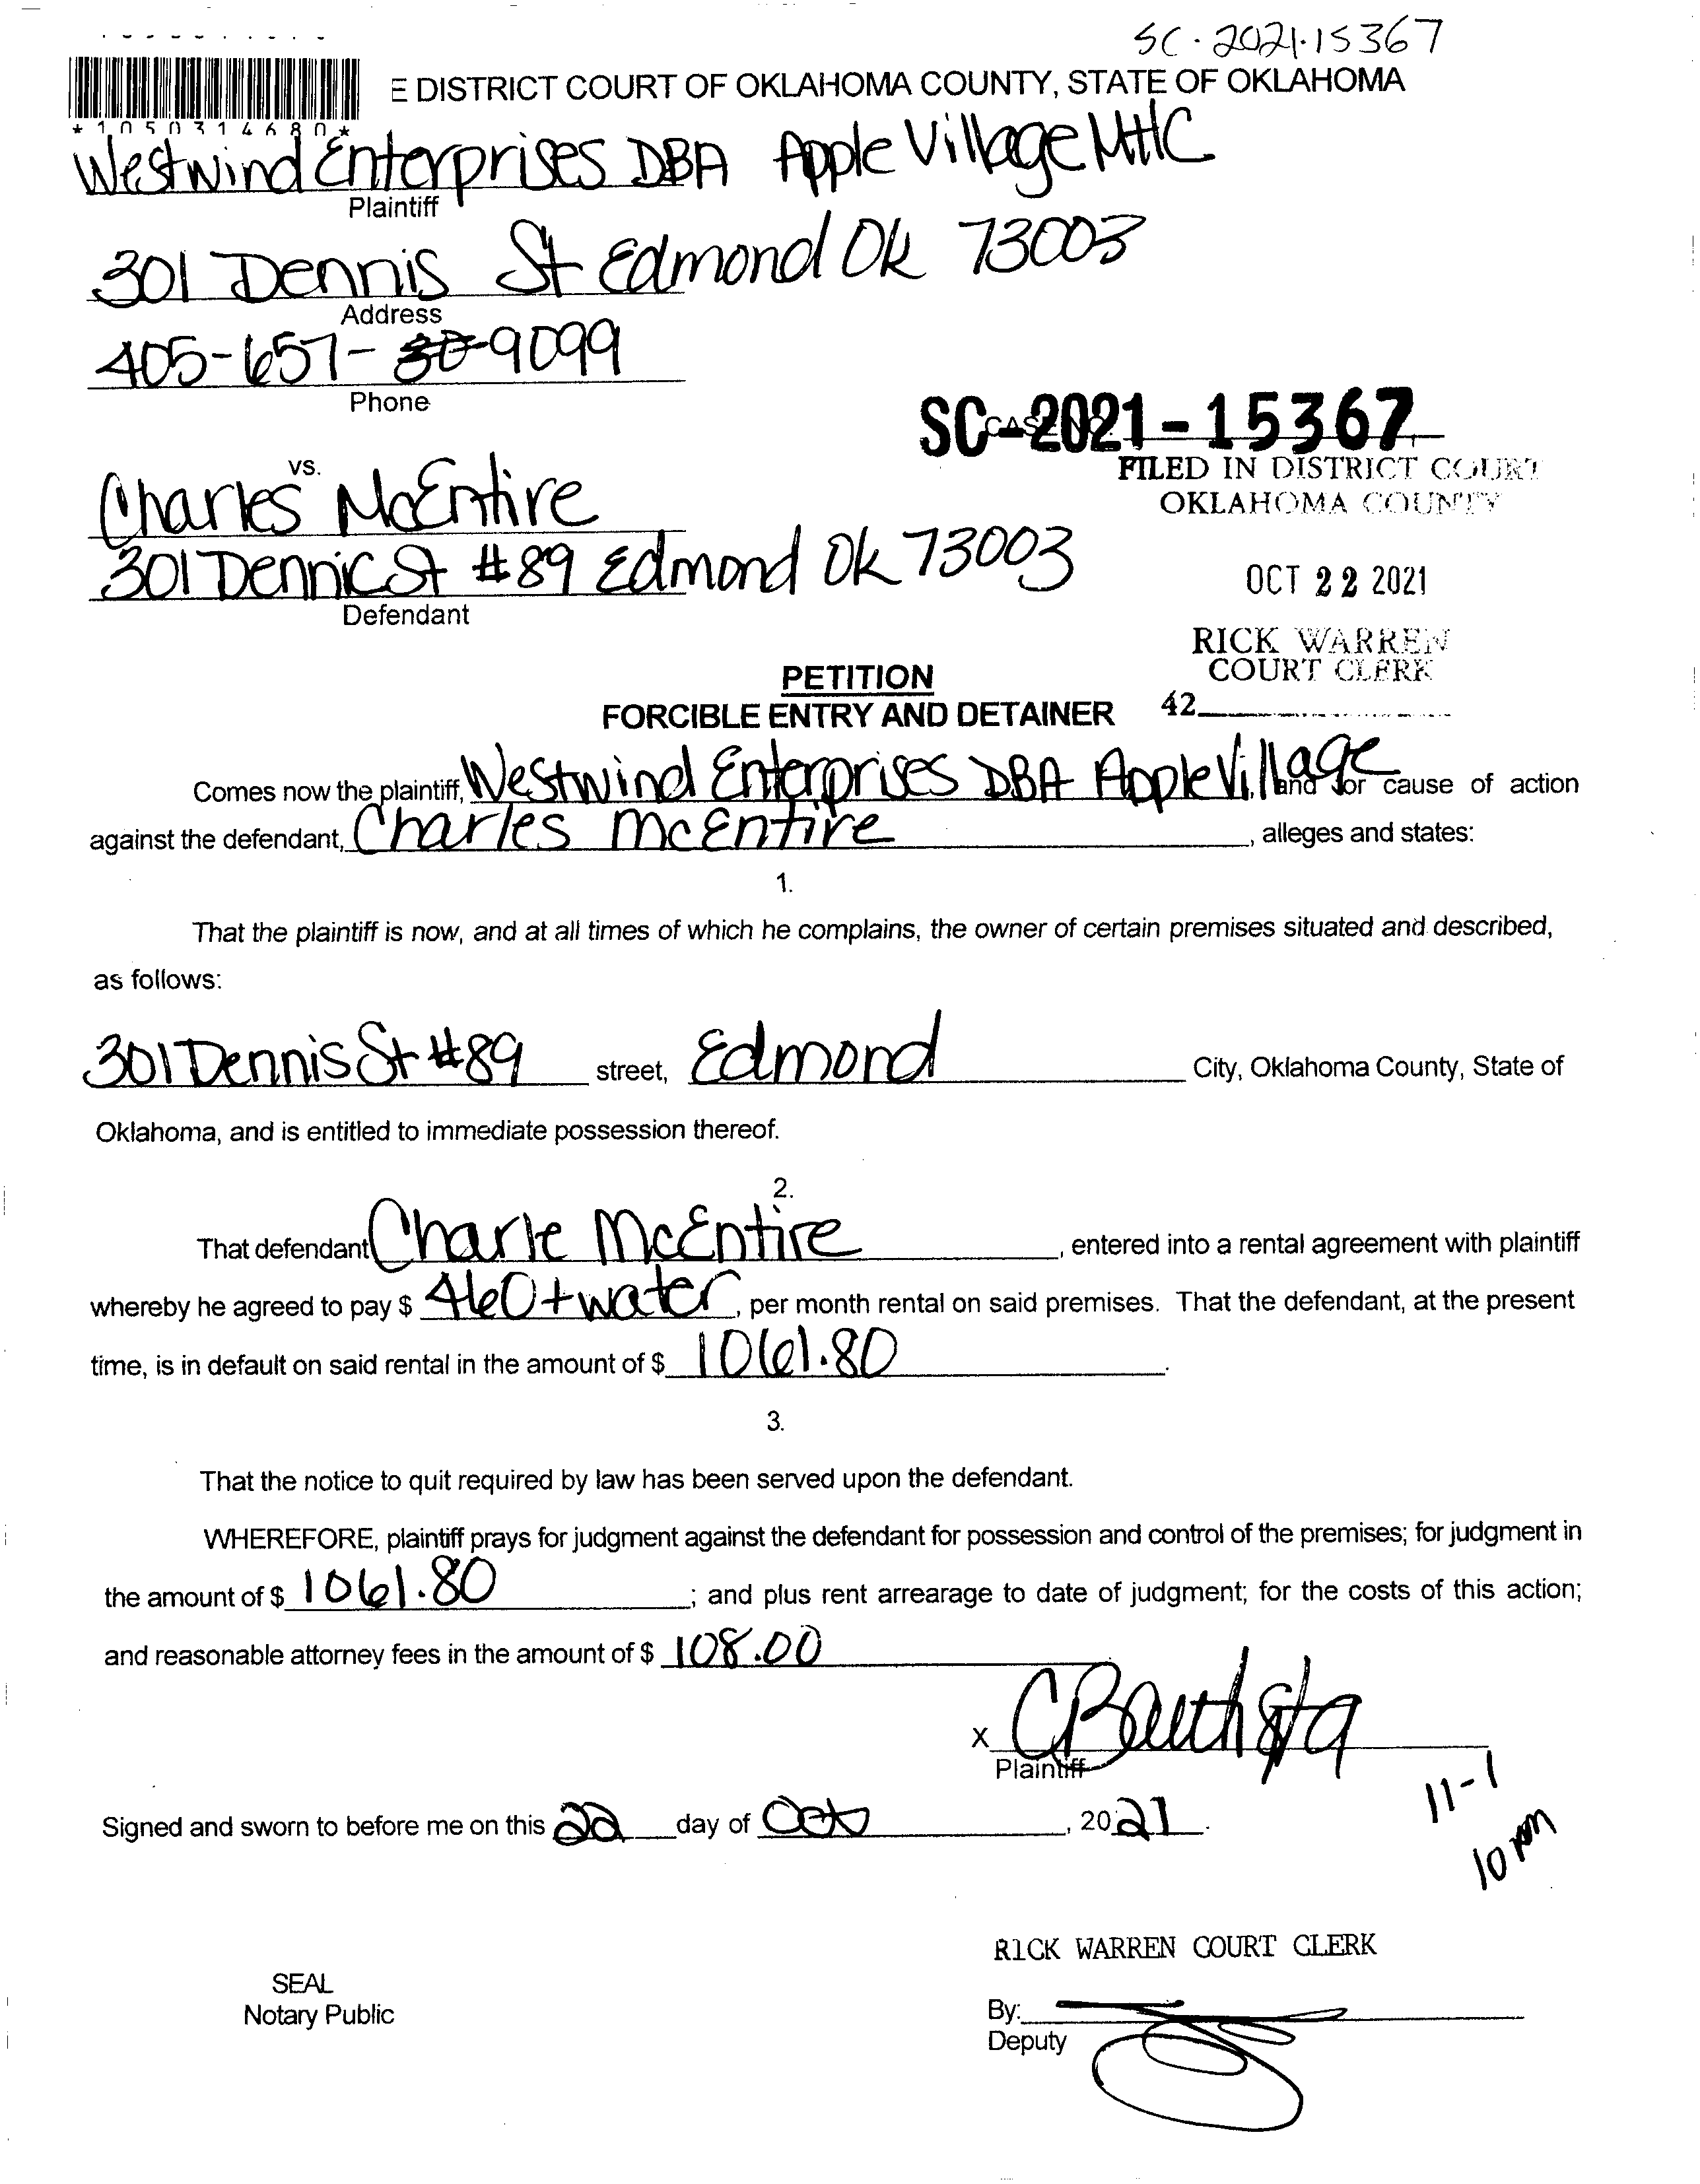 SC-2021-15367
E DISTRICT COURT OF OKLAHOMA COUNTY, STATE OF OKLAHOMA
*1050314680*
Westwind Enterprises DBA Apple Village MHC
Plaintiff
301 Dennis St Edmond Ok 73003
Address
405-657-9099
Phone
SC-2021-15367
FILED IN DISTRICT COURT
OKLAHOMA COUNTY
vs.
Charles McEntire
301 Dennic St #89 Edmond Ok 73003
Defendant
OCT 22 2021
RICK WARREN
COURT CLERK
42
PETITION
FORCIBLE ENTRY AND DETAINER
Comes now the plaintiff, Westwind Enterprises DBA Apple Village, and for cause of action
against the defendant, Charles McEntire, alleges and states:
1.
That the plaintiff is now, and at all times of which he complains, the owner of certain premises situated and described,
as follows:
301 Dennis St #89 street, Edmond City, Oklahoma County, State of
Oklahoma, and is entitled to immediate possession thereof.
2.
That defendant Charle McEntire, entered into a rental agreement with plaintiff
whereby he agreed to pay $ 460+water, per month rental on said premises. That the defendant, at the present
time, is in default on said rental in the amount of $ 1061.80.
3.
That the notice to quit required by law has been served upon the defendant.
WHEREFORE, plaintiff prays for judgment against the defendant for possession and control of the premises; for judgment in
the amount of $ 1061.80; and plus rent arrearage to date of judgment; for the costs of this action;
and reasonable attorney fees in the amount of $ 108.00
x CBautista
Plaintiff
11-1
10 am
Signed and sworn to before me on this 22 day of Oct, 2021.
RICK WARREN COURT CLERK
SEAL
Notary Public
By:
Deputy